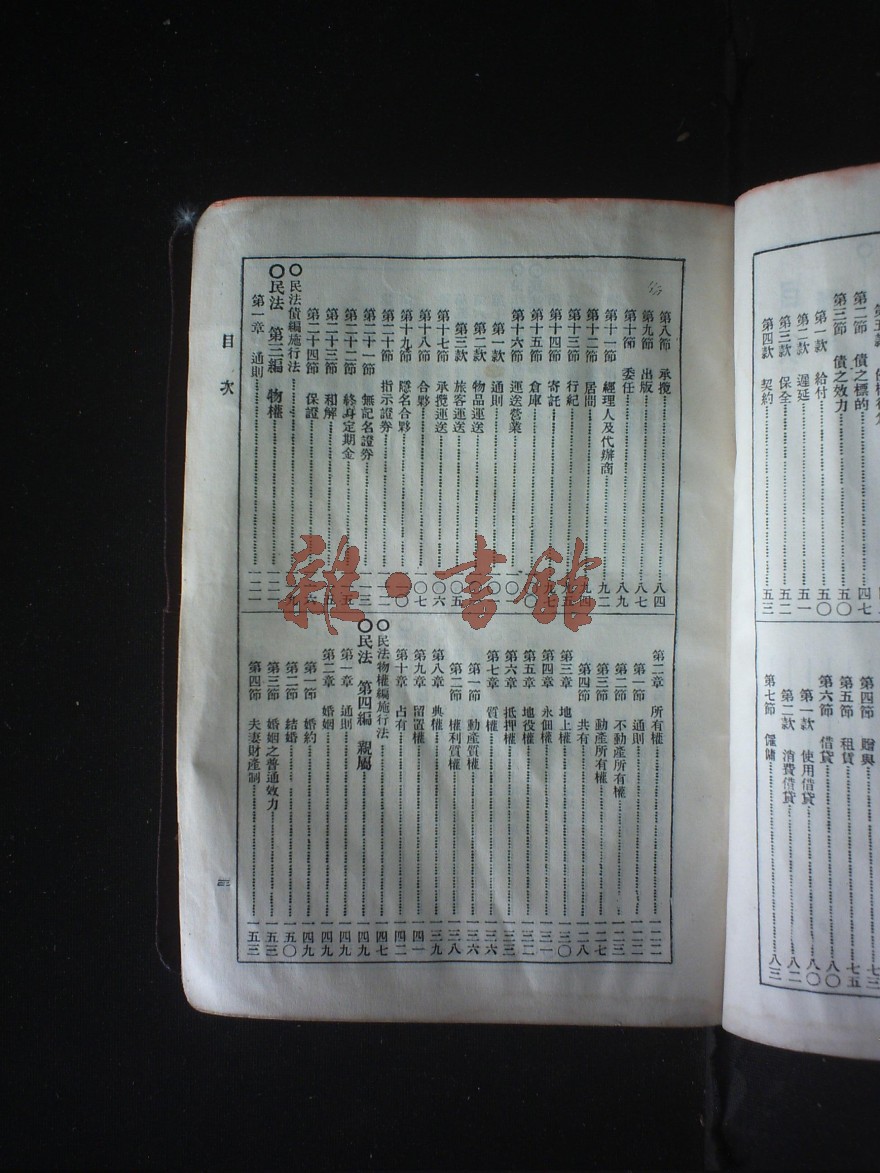 第二節 債之標的 四七
第三節 債之效力 五〇
第一款 給付 五〇
第二款 遲延 五一
第三款 保全 五二
第四款 契約 五三
第四節 贈與 七三
第五節 租賃 七五
第六節 借貸 八〇
第一款 使用借貸 八〇
第二款 消費借貸 八二
第七節 僱傭 八三
第八節 承攬 八四
第九節 出版 八七
第十節 委任 八九
第十一節 經理人及代辦商 九二
第十二節 居間 九四
第十三節 行紀
第十四節 寄託
第十五節 倉庫
第十六節 運送營業
第一款 通則
第二款 物品運送
第三款 旅客運送
第十七節 承攬運送
第十八節 合夥
第十九節 隱名合夥
第二十節 指示證券
第二十一節 無記名證券
第二十二節 終身定期金
第二十三節 和解
第二十四節 保證
〇民法債編施行法
〇民法 第三編 物權
第一章 通則 一二一
第二章 所有權 一二二
第一節 通則 一二二
第二節 不動產所有權 一二三
第三節 動產所有權 一二七
第四節 共有 一二八
第三章 地上權 一三〇
第四章 永佃權 一三一
第五章 地役權 一三二
第六章 抵押權 一三三
第七章 質權 一三六
第一節 動產質權 一三六
第二節 權利質權 一三八
第八章 典權 一三九
第九章 留置權 一四一
第十章 占有 一四二
〇民法物權編施行法 一四七
〇民法 第四編 親屬 一四九
第一章 通則 一四九
第二章 婚姻 一四九
第一節 婚約 一四九
第二節 結婚 一五〇
第三節 婚姻之普通效力 一五三
第四節 夫妻財產制 一五三
目次
三
雜·書館